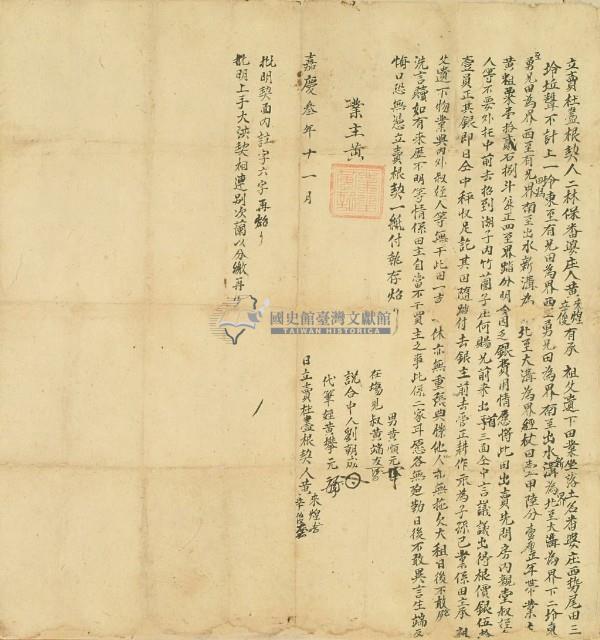 立賣杜盡根契人二林保番婆庄人黃來煌立俊有承祖父遺下田業坐落土名番婆庄西勢尾田三
坵聲不計上一坵東至有兄田為界西至勇兄田為界南至出水溝為界北至大溝為界下二坵東
至勇兄田為界西至有兄界南至出水新溝為 北至大溝為界經丈田壹甲陸分 年帶業主
黃租粟 拾貳石捌斗 正四至界踏分明今因乏銀費用情愿將此田出賣先問房內親堂叔
人等不要外托中前去招到湖子內竹圍子庄何賜兄前來出首三面仝中言議議出得根價銀伍
壹員正其銀即日仝中秤收足訖其田隨踏付去銀主前去管正耕作永為子孫己業保田主承祖
父遺下物業與內外叔 人等無干此田一 休亦無重張典 他人亦無拖欠大租日後不敢
洗言贖如有來歷不明等情係田主自當不干買主之事此係二家 愿各無 勒日後不敢異言生端反
悔口恐無憑立賣根契一紙付執存炤
男黃順元
在場見叔黃端友
說合中人劉朝成
代筆姪黃攀元
日立賣杜盡根契人黃來煌
業主黃
嘉慶叁年十一月
批明契面內註字六字再炤
批明上手大 契相連別次蘭以分繳再
國史館臺灣文獻館
TAIWAN HISTORICA